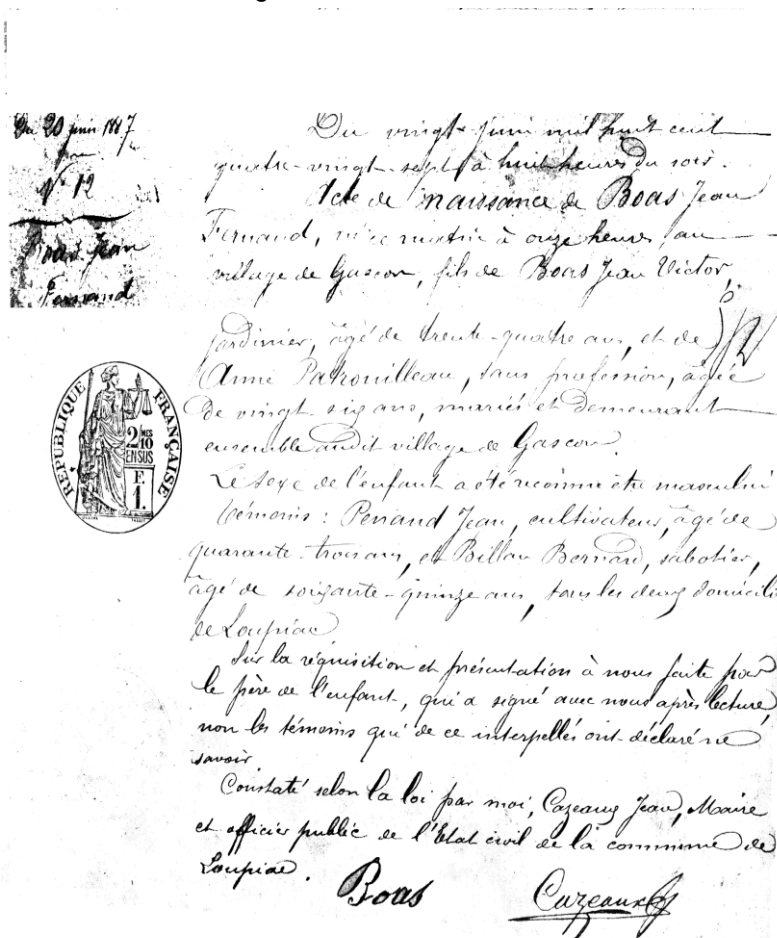 Du 20 juin 1887
N° 12
Boas Jean
Fernand
Du vingt juin mil huit cent
quatre-vingt-sept à huit heures du soir.
Acte de naissance de Boas Jean
Fernand, né ce matin à onze heures, au
village de Gascon, fils de Boas Jean Victor,
jardinier, âgé de trente-quatre ans, et de
Anne Patrouilleau, sans profession, âgée
de vingt six ans, mariés et demeurant
ensemble audit village de Gascon.
RÉPUBLIQUE FRANÇAISE
2 MES
10
EN SUS
F.
1.
Le sexe de l'enfant a été reconnu être masculin
témoins : Penaud Jean, cultivateur, âgé de
quarante-trois ans, et Billau Bernard, sabotier,
âgé de soixante-quinze ans, tous les deux domicili
de Loupiac
Sur la réquisition et présentation à nous faite par
le père de l'enfant, qui a signé avec nous après lecture,
non les témoins qui de ce interpellés ont déclaré ne
savoir.
Constaté selon la loi par moi, Cazeaux Jean, Maire
et officier public de l'Etat civil de la commune de
Loupiac.
Boas Cazeaux